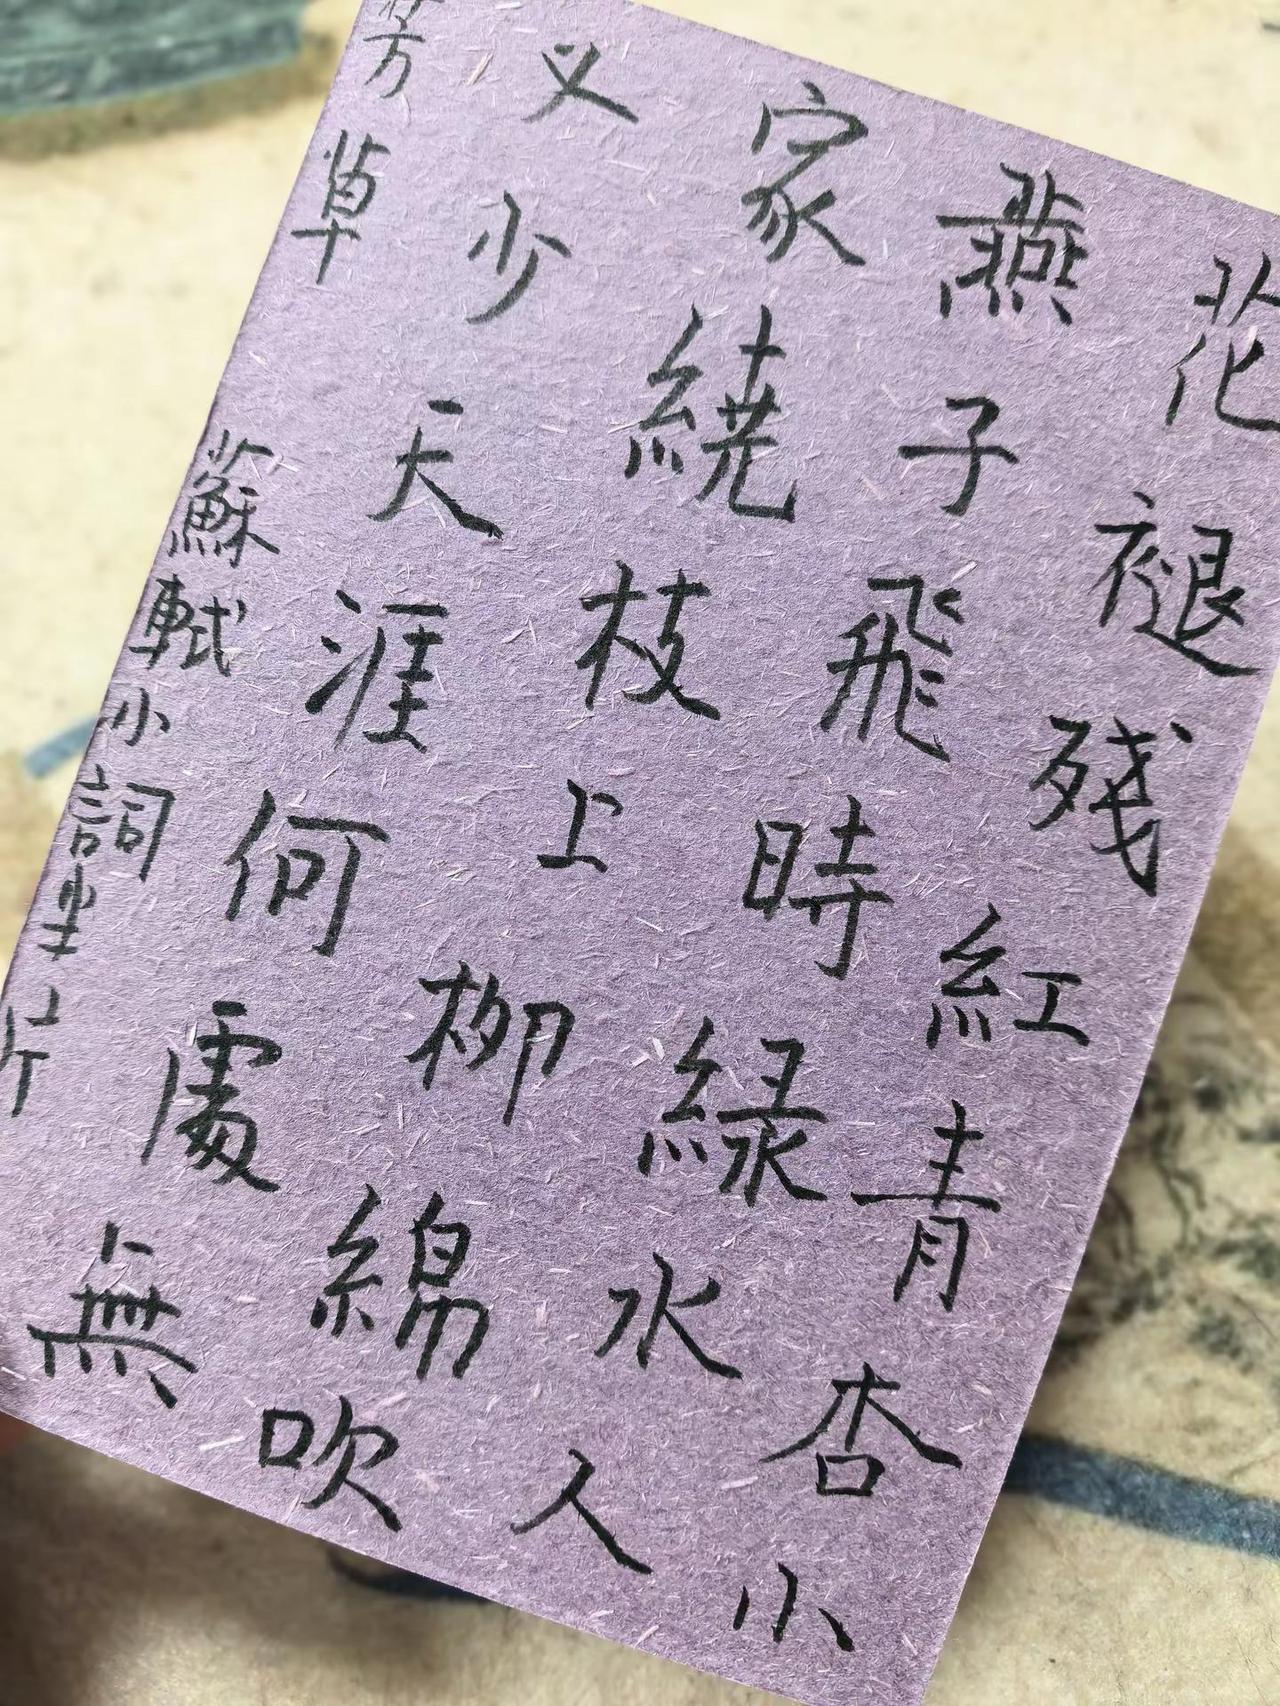 花褪残紅青杏小
燕子飛時緑水人
家繞枝上柳綿吹
又少天涯何處無
芳草 蘇軾小詞